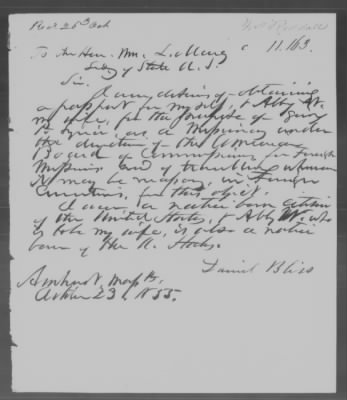 Recd 25th Oct
11.163.
To the Hon. Wm. L. Marcy
Secty of State U. S.
Sir.
I am desirous of obtaining
a passport for myself, & Abby W.
my wife, for the purpose of going
to Syria as a Missionary under
the direction of the American
Board of Commissioners for Foreign
Missions and of traveling wherever
it may be necessary in Foreign
Countries, for this object.
I am a native born citizen
of the United States, & Abby W. who
is to be my wife, is also a native
born of the U. States.
Daniel Bliss
Amherst, Mass
October 23d, 1855.